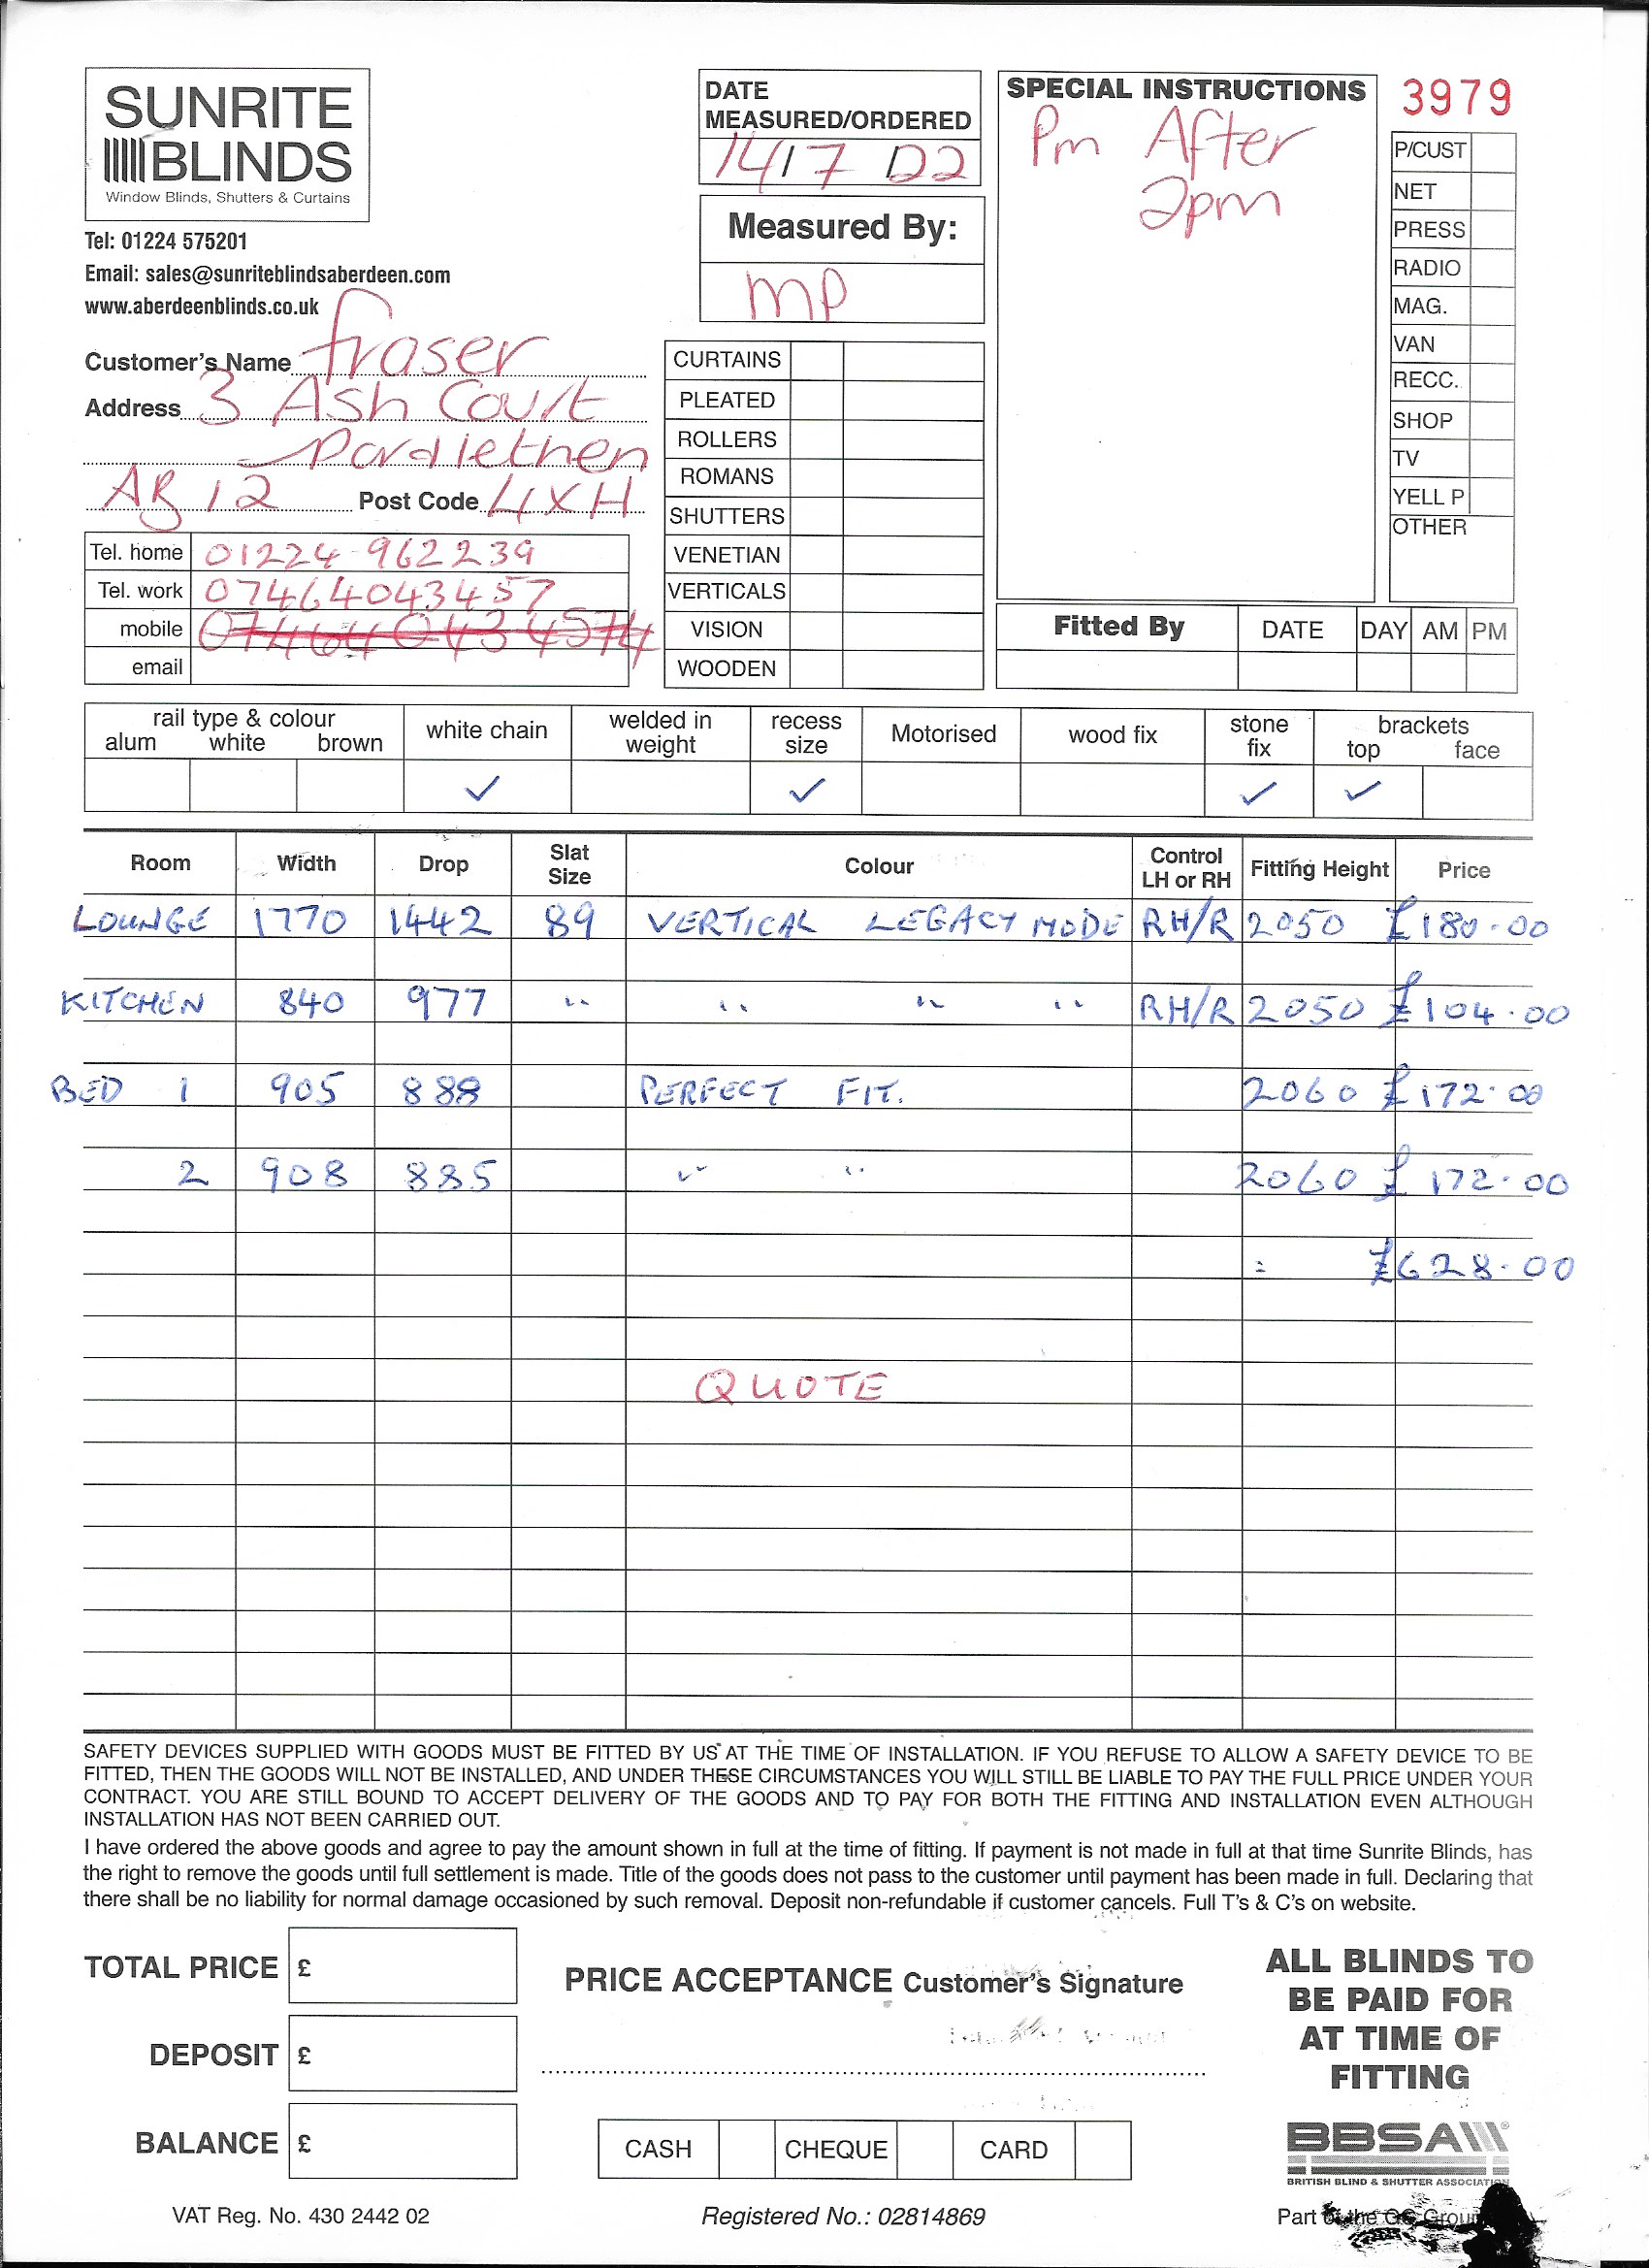 SUNRITE
BLINDS
Window Blinds, Shutters & Curtains
Tel: 01224 575201
Email: sales@sunriteblindsaberdeen.com
www.aberdeenblinds.co.uk
Customer's Name Fraser
Address 3 Ash Court
Pordlethen
AB12 Post Code 4XH
Tel. home 01224 962239
Tel. work 07464043457
mobile 074640434574
email
DATE
MEASURED/ORDERED
14/7 D2
Measured By:
MP
CURTAINS
PLEATED
ROLLERS
ROMANS
SHUTTERS
VENETIAN
VERTICALS
VISION
WOODEN
SPECIAL INSTRUCTIONS
Pm After
2pm
3979
P/CUST
NET
PRESS
RADIO
MAG.
VAN
RECC.
SHOP
TV
YELL P
OTHER
Fitted By DATE DAY AM PM
rail type & colour
alum white brown
white chain
welded in
weight
recess
size
Motorised
wood fix
stone
fix
brackets
top face
✓ ✓ ✓ ✓
Room Width Drop Slat Size Colour Control LH or RH Fitting Height Price
LOUNGE 1770 1442 89 VERTICAL LEGACY MODE RH/R 2050 £180.00
KITCHEN 840 977 " " " " RH/R 2050 £104.00
BED 1 905 888 PERFECT FIT. 2060 £172.00
2 908 885 " " 2060 £172.00
= £628.00
QUOTE
SAFETY DEVICES SUPPLIED WITH GOODS MUST BE FITTED BY US AT THE TIME OF INSTALLATION. IF YOU REFUSE TO ALLOW A SAFETY DEVICE TO BE
FITTED, THEN THE GOODS WILL NOT BE INSTALLED, AND UNDER THESE CIRCUMSTANCES YOU WILL STILL BE LIABLE TO PAY THE FULL PRICE UNDER YOUR
CONTRACT. YOU ARE STILL BOUND TO ACCEPT DELIVERY OF THE GOODS AND TO PAY FOR BOTH THE FITTING AND INSTALLATION EVEN ALTHOUGH
INSTALLATION HAS NOT BEEN CARRIED OUT.
I have ordered the above goods and agree to pay the amount shown in full at the time of fitting. If payment is not made in full at that time Sunrite Blinds, has
the right to remove the goods until full settlement is made. Title of the goods does not pass to the customer until payment has been made in full. Declaring that
there shall be no liability for normal damage occasioned by such removal. Deposit non-refundable if customer cancels. Full T's & C's on website.
TOTAL PRICE £
DEPOSIT £
BALANCE £
PRICE ACCEPTANCE Customer's Signature
CASH CHEQUE CARD
ALL BLINDS TO
BE PAID FOR
AT TIME OF
FITTING
BBSA
BRITISH BLIND & SHUTTER ASSOCIATION
VAT Reg. No. 430 2442 02
Registered No.: 02814869
Part of the Group